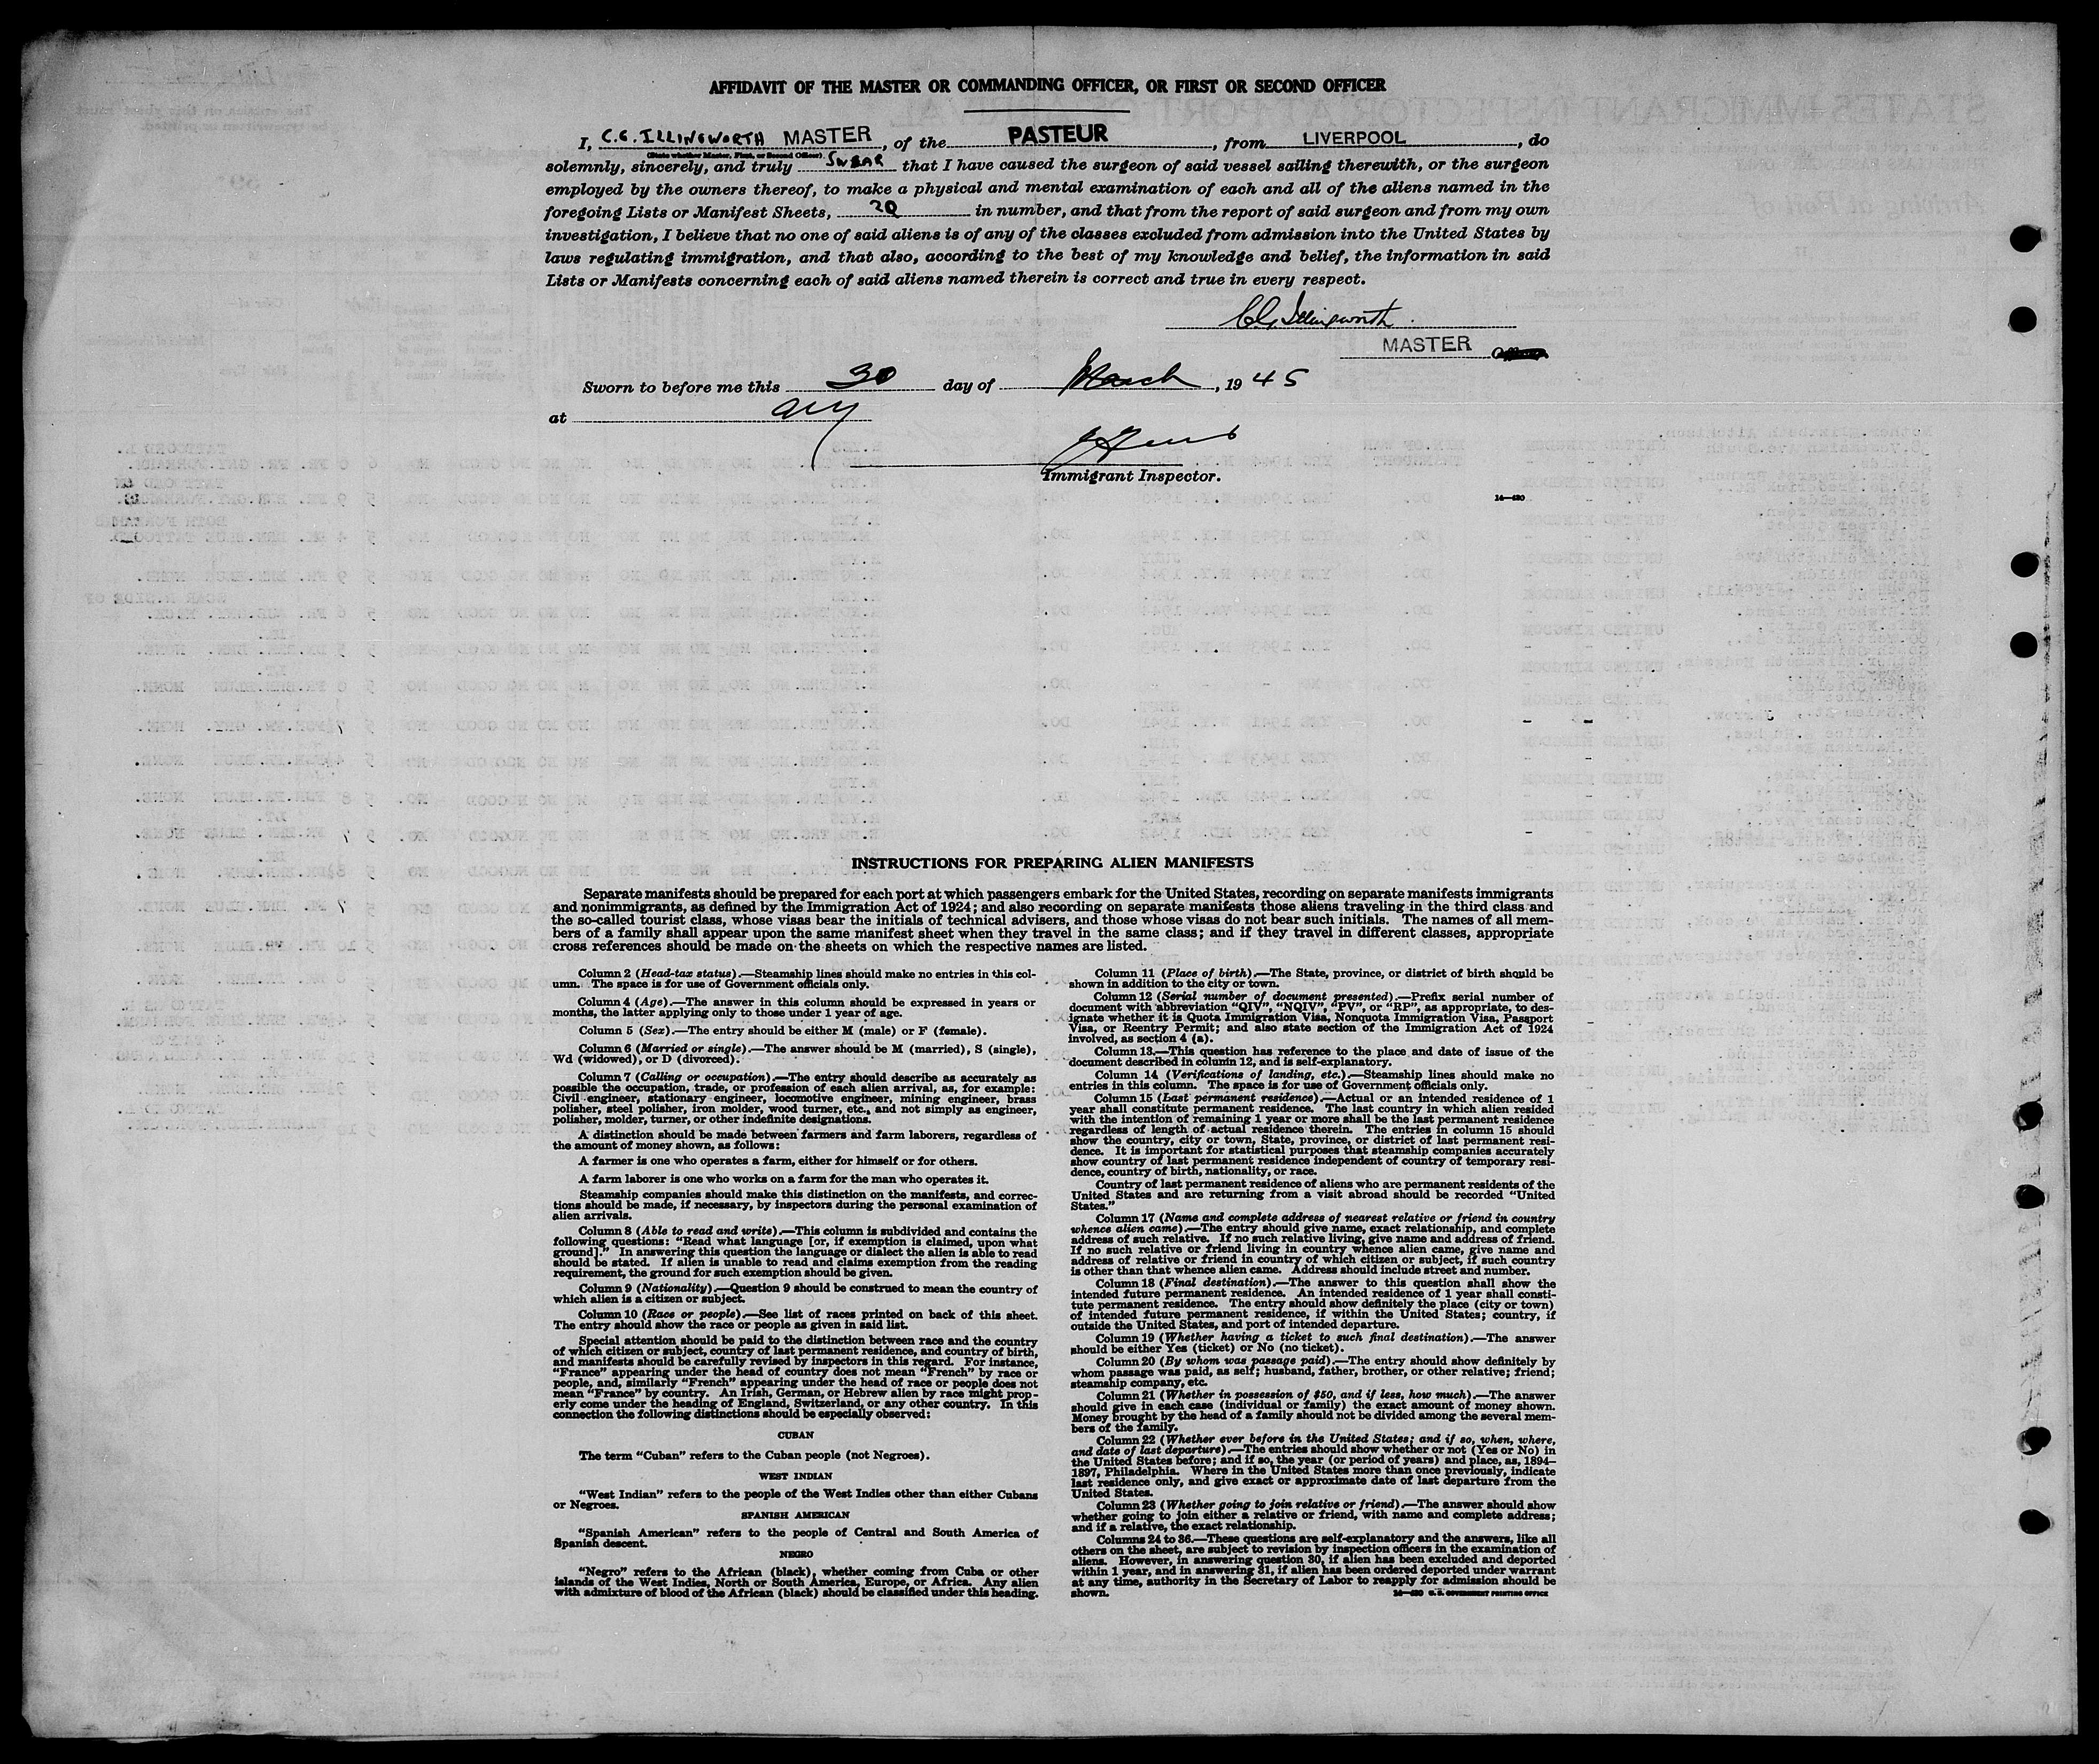 AFFIDAVIT OF THE MASTER OR COMMANDING OFFICER, OR FIRST OR SECOND OFFICER
I, C.G. ILLINGWORTH MASTER, of the PASTEUR, from LIVERPOOL, do
(State whether Master, First, or Second Officer)
solemnly, sincerely, and truly SWEAR that I have caused the surgeon of said vessel sailing therewith, or the surgeon
employed by the owners thereof, to make a physical and mental examination of each and all of the aliens named in the
foregoing Lists or Manifest Sheets, in number, and that from the report of said surgeon and from my own
investigation, I believe that no one of said aliens is of any of the classes excluded from admission into the United States by
laws regulating immigration, and that also, according to the best of my knowledge and belief, the information in said
Lists or Manifests concerning each of said aliens named therein is correct and true in every respect.
C.G. Illingworth
MASTER Officer
Sworn to before me this 30 day of March, 1945
at
Immigrant Inspector.
14—430
INSTRUCTIONS FOR PREPARING ALIEN MANIFESTS
Separate manifests should be prepared for each port at which passengers embark for the United States, recording on separate manifests immigrants
and nonimmigrants, as defined by the Immigration Act of 1924; and also recording on separate manifests those aliens traveling in the third class and
the so-called tourist class, whose visas bear the initials of technical advisers, and those whose visas do not bear such initials. The names of all mem-
bers of a family shall appear upon the same manifest sheet when they travel in the same class; and if they travel in different classes, appropriate
cross references should be made on the sheets on which the respective names are listed.
Column 2 (Head-tax status).—Steamship lines should make no entries in this col-
umn. The space is for use of Government officials only.
Column 4 (Age).—The answer in this column should be expressed in years or
months, the latter applying only to those under 1 year of age.
Column 5 (Sex).—The entry should be either M (male) or F (female).
Column 6 (Married or single).—The answer should be M (married), S (single),
Wd (widowed), or D (divorced).
Column 7 (Calling or occupation).—The entry should describe as accurately as
possible the occupation, trade, or profession of each alien arrival, as, for example:
Civil engineer, stationary engineer, locomotive engineer, mining engineer, brass
polisher, steel polisher, iron molder, wood turner, etc., and not simply as engineer,
polisher, molder, turner, or other indefinite designations.
A distinction should be made between farmers and farm laborers, regardless of
the amount of money shown, as follows:
A farmer is one who operates a farm, either for himself or for others.
A farm laborer is one who works on a farm for the man who operates it.
Steamship companies should make this distinction on the manifests, and correc-
tions should be made, if necessary, by inspectors during the personal examination of
alien arrivals.
Column 8 (Able to read and write).—This column is subdivided and contains the
following questions: "Read what language [or, if exemption is claimed, upon what
ground]." In answering this question the language or dialect the alien is able to read
should be stated. If alien is unable to read and claims exemption from the reading
requirement, the ground for such exemption should be given.
Column 9 (Nationality).—Question 9 should be construed to mean the country of
which alien is a citizen or subject.
Column 10 (Race or people).—See list of races printed on back of this sheet.
The entry should show the race or people as given in said list.
Special attention should be paid to the distinction between race and the country
of which citizen or subject, country of last permanent residence, and country of birth,
and manifests should be carefully revised by inspectors in this regard. For instance,
"France" appearing under the head of country does not mean "French" by race or
people, and, similarly "French" appearing under the head of race or people does not
mean "France" by country. An Irish, German, or Hebrew alien by race might prop-
erly come under the heading of England, Switzerland, or any other country. In this
connection the following distinctions should be especially observed:
CUBAN
The term "Cuban" refers to the Cuban people (not Negroes).
WEST INDIAN
"West Indian" refers to the people of the West Indies other than either Cubans
or Negroes.
SPANISH AMERICAN
"Spanish American" refers to the people of Central and South America of
Spanish descent.
NEGRO
"Negro" refers to the African (black), whether coming from Cuba or other
islands of the West Indies, North or South America, Europe, or Africa. Any alien
with admixture of blood of the African (black) should be classified under this heading.
Column 11 (Place of birth).—The State, province, or district of birth should be
shown in addition to the city or town.
Column 12 (Serial number of document presented).—Prefix serial number of
document with abbreviation "QIV", "NQIV", "PV", or "RP", as appropriate, to des-
ignate whether it is Quota Immigration Visa, Nonquota Immigration Visa, Passport
Visa, or Reentry Permit; and also state section of the Immigration Act of 1924
involved, as section 4 (a).
Column 13.—This question has reference to the place and date of issue of the
document described in column 12, and is self-explanatory.
Column 14 (Verifications of landing, etc.).—Steamship lines should make no
entries in this column. The space is for use of Government officials only.
Column 15 (Last permanent residence).—Actual or an intended residence of 1
year shall constitute permanent residence. The last country in which alien resided
with the intention of remaining 1 year or more shall be the last permanent residence
regardless of length of actual residence therein. The entries in column 15 should
show the country, city or town, State, province, or district of last permanent resi-
dence. It is important for statistical purposes that steamship companies accurately
show country of last permanent residence independent of country of temporary resi-
dence, country of birth, nationality, or race.
Country of last permanent residence of aliens who are permanent residents of the
United States and are returning from a visit abroad should be recorded "United
States."
Column 17 (Name and complete address of nearest relative or friend in country
whence alien came).—The entry should give name, exact relationship, and complete
address of such relative. If no such relative living, give name and address of friend.
If no such relative or friend living in country whence alien came, give name and
address of relative or friend in country of which citizen or subject, if such country
is other than that whence alien came. Address should include street and number.
Column 18 (Final destination).—The answer to this question shall show the
intended future permanent residence. An intended residence of 1 year shall consti-
tute permanent residence. The entry should show definitely the place (city or town)
of intended future permanent residence, if within the United States; country, if
outside the United States, and port of intended departure.
Column 19 (Whether having a ticket to such final destination).—The answer
should be either Yes (ticket) or No (no ticket).
Column 20 (By whom was passage paid).—The entry should show definitely by
whom passage was paid, as self; husband, father, brother, or other relative; friend;
steamship company, etc.
Column 21 (Whether in possession of $50, and if less, how much).—The answer
should give in each case (individual or family) the exact amount of money shown.
Money brought by the head of a family should not be divided among the several mem-
bers of the family.
Column 22 (Whether ever before in the United States; and if so, when, where,
and date of last departure).—The entries should show whether or not (Yes or No) in
the United States before; and if so, the year (or period of years) and place, as, 1894–
1897, Philadelphia. Where in the United States more than once previously, indicate
last residence only, and give exact or approximate date of last departure from the
United States.
Column 23 (Whether going to join relative or friend).—The answer should show
whether going to join either a relative or friend, with name and complete address;
and if a relative, the exact relationship.
Columns 24 to 36.—These questions are self-explanatory and the answers, like all
others on the sheet, are subject to revision by inspection officers in the examination of
aliens. However, in answering question 30, if alien has been excluded and deported
within 1 year, and in answering 31, if alien has been ordered deported under warrant
at any time, authority in the Secretary of Labor to reapply for admission should be
shown.
14—430 U. S. GOVERNMENT PRINTING OFFICE